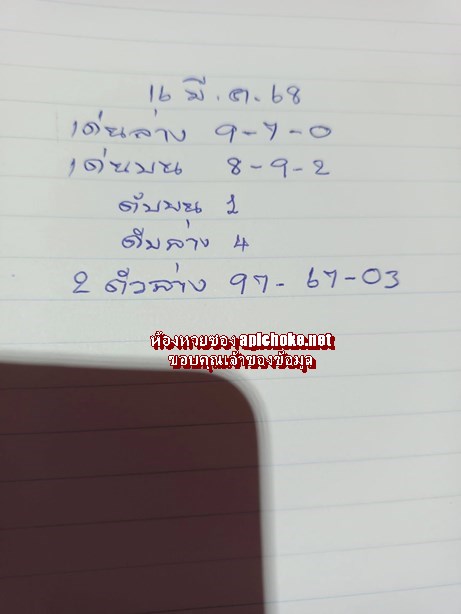 16 มี.ค.68
เด่นล่าง 9-7-0
เด่นบน 8-9-2
ดับบน 1
ดับล่าง 4
2 ตัวล่าง 97-67-03
ห้องหวยซอง apichoke.net
ขอบคุณเจ้าของข้อมูล